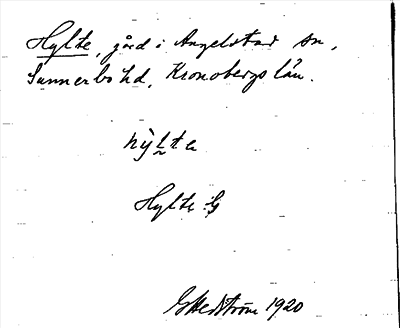 Hylte, gård i Angelstad sn,
Sunnerbo hd, Kronobergs län.
hỳl̰ta
Hylte G
G Hedström 1920